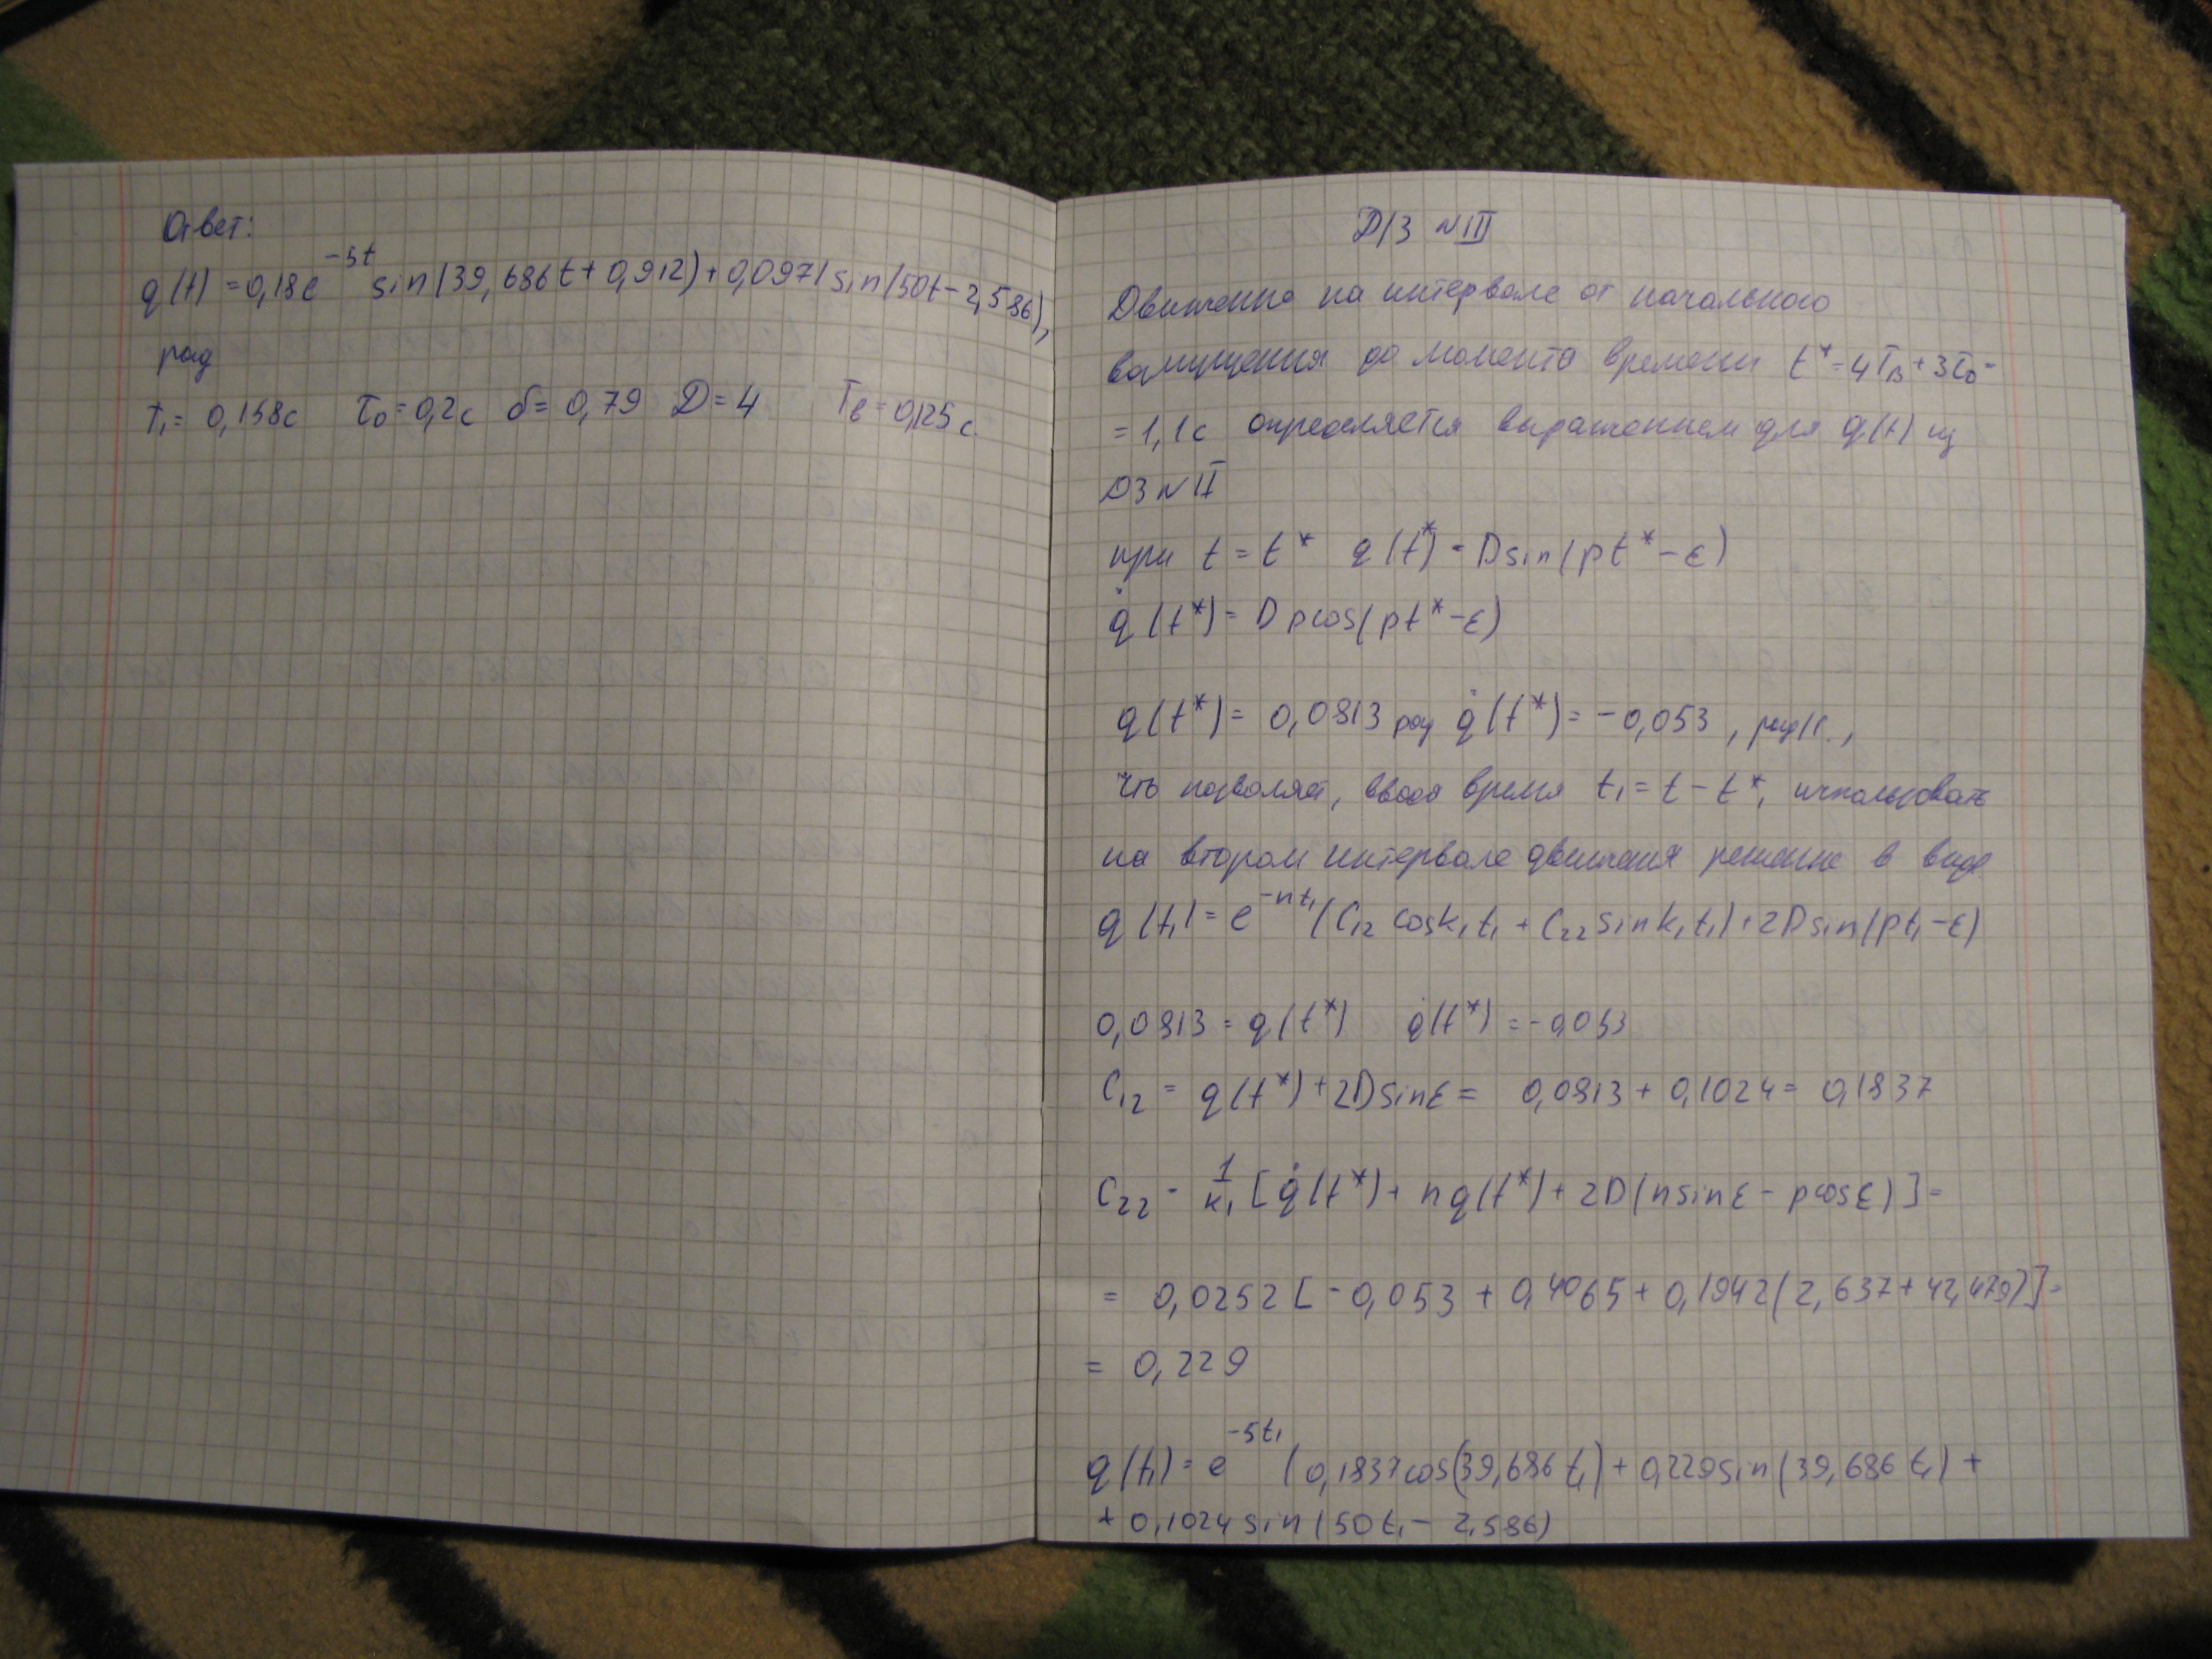 Ответ:
q(t) = 0,18e^{-5t} sin(39,686t + 0,912) + 0,0971 sin(50t - 2,586),
рад
T₁ = 0,158с τ₀ = 0,2с δ = 0,79 D = 4 Tв = 0,125с.
Д/З №III
Движение на интервале от начального
возмущения до момента времени t* = 4Tв + 3τ₀ =
= 1,1с определяется выражением для q(t) из
ДЗ №II
при t = t* q(t*) = Dsin(pt* - ε)
q̇(t*) = Dpcos(pt* - ε)
q(t*) = 0,0813 рад q̇(t*) = -0,053, рад/с.,
что позволяет, вводя время t₁ = t - t*, использовать
на втором интервале движения решение в виде
q(t₁) = e^{-nt₁}(C₁₂ cosk₁t₁ + C₂₂ sink₁t₁) + 2Dsin(pt₁ - ε)
0,0813 = q(t*) q̇(t*) = -0,053
C₁₂ = q(t*) + 2Dsinε = 0,0813 + 0,1024 = 0,1837
C₂₂ = 1/k₁ [q̇(t*) + nq(t*) + 2D(nsinε - pcosε)] =
= 0,0252 [-0,053 + 0,4065 + 0,1942(2,637 + 42,479)] =
= 0,229
q(t₁) = e^{-5t₁} (0,1837cos(39,686t₁) + 0,229sin(39,686t₁) +
+ 0,1024sin(50t₁ - 2,586)